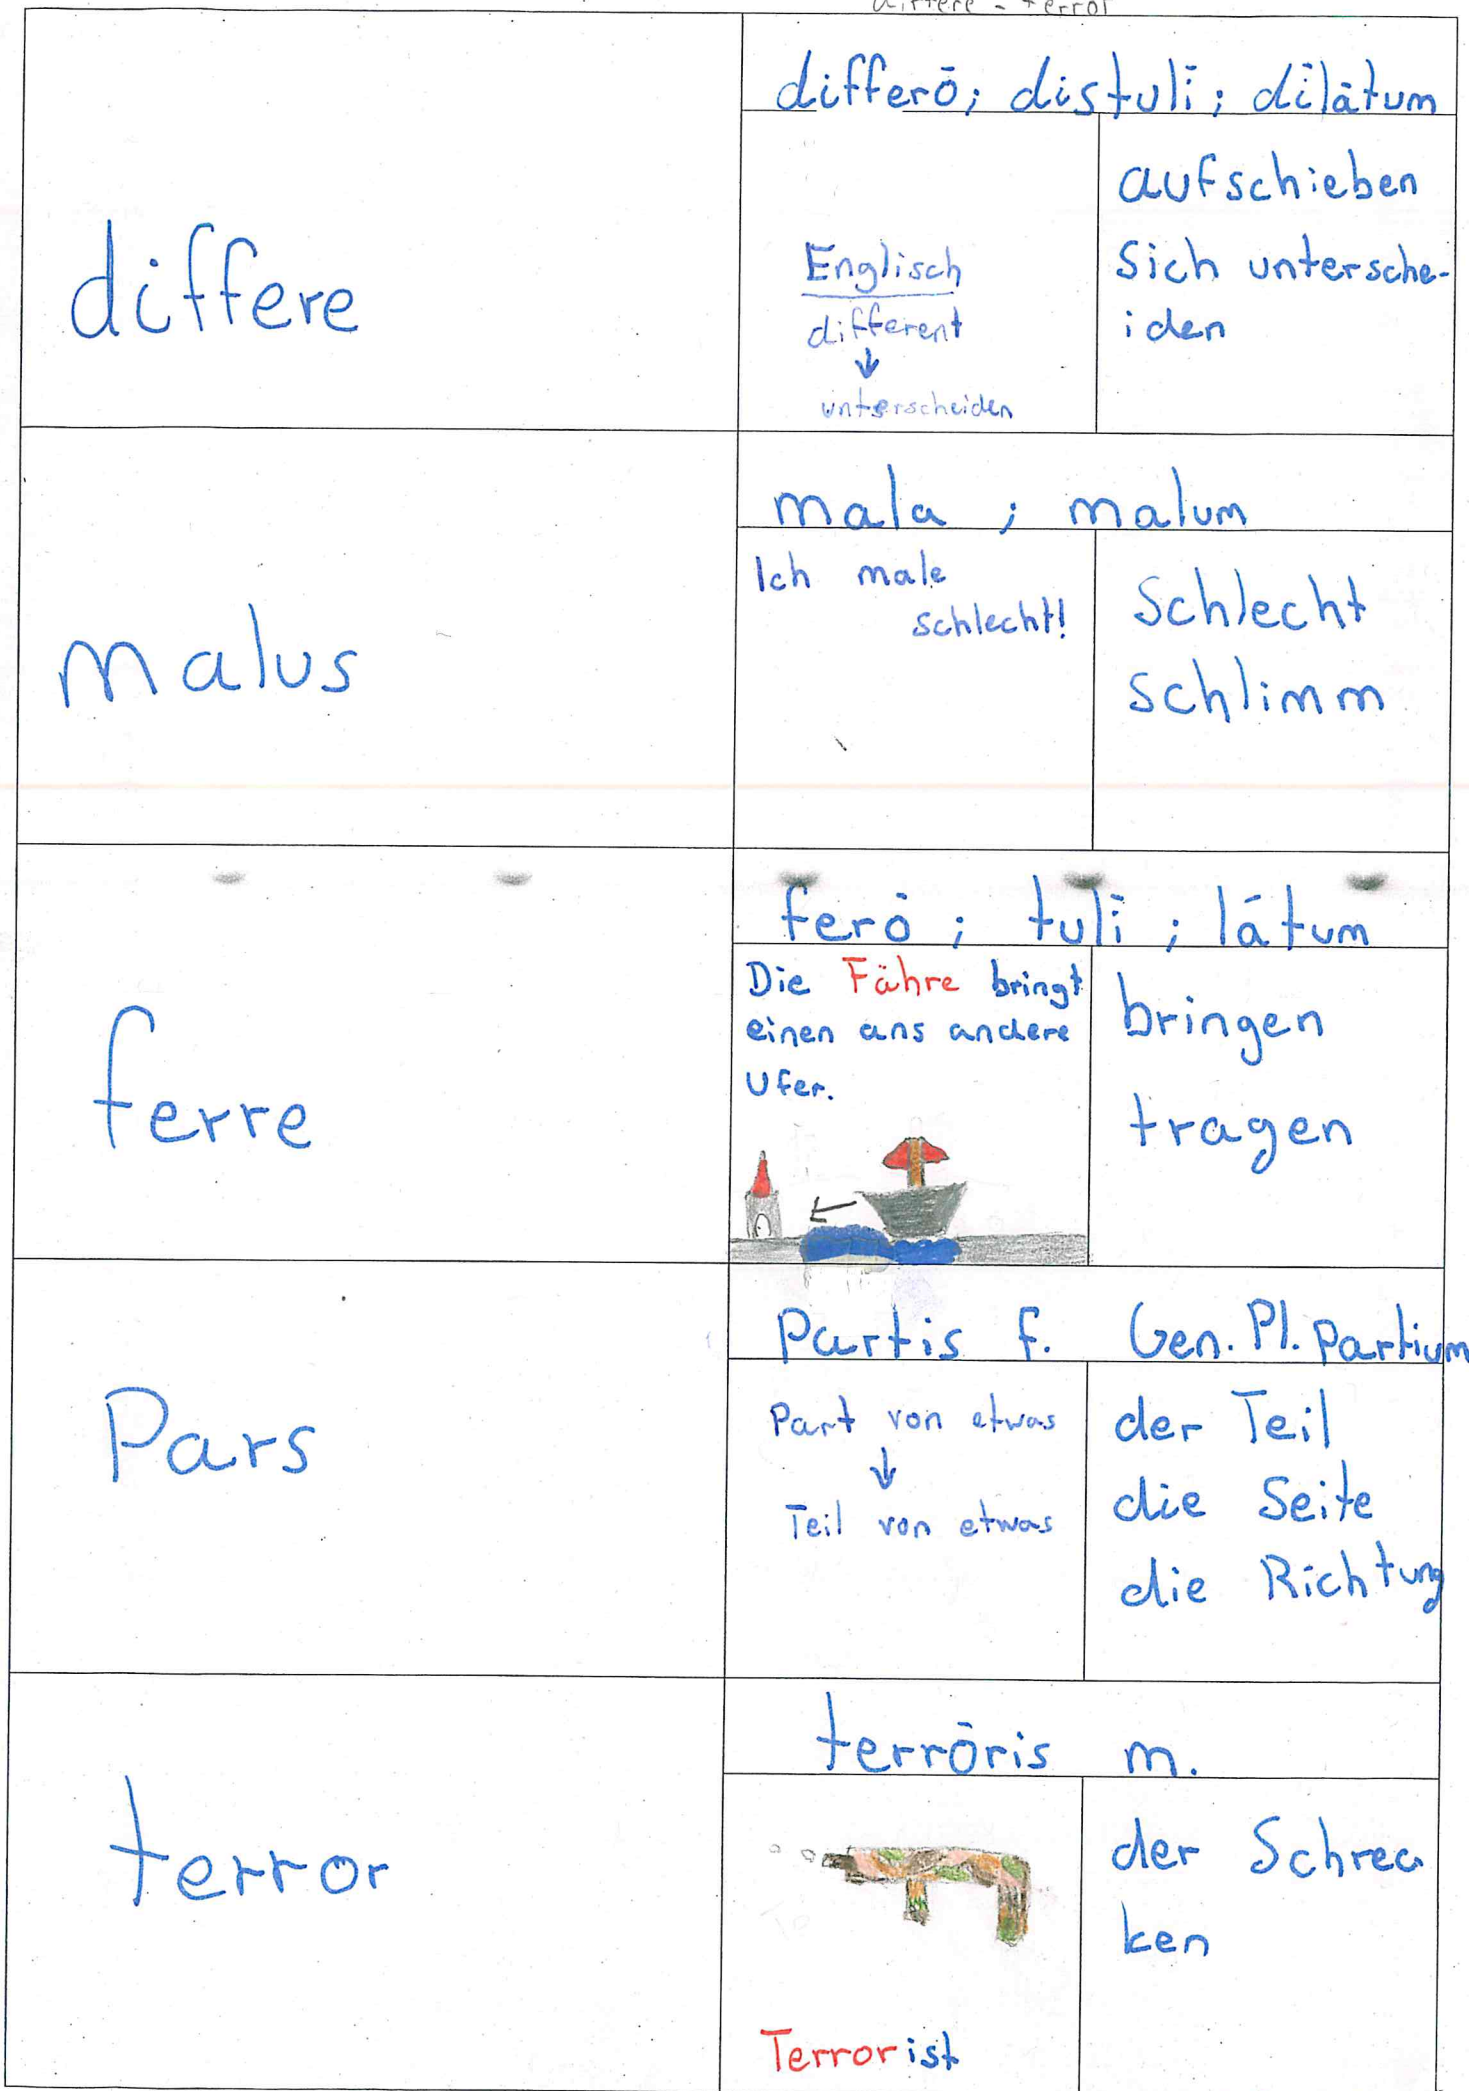 differe - terror
differe
differō; distulī; dīlātum
Englisch
different
↓
unterscheiden
aufschieben
Sich untersche-
iden
malus
mala ; malum
Ich male
schlecht!
Schlecht
schlimm
ferre
ferō ; tulī ; lātum
Die Fähre bringt
einen ans andere
Ufer.
bringen
tragen
Pars
Partis f. Gen. Pl. Partium
Part von etwas
↓
Teil von etwas
der Teil
die Seite
die Richtung
terror
terrōris m.
Terrorist
der Schrec
ken